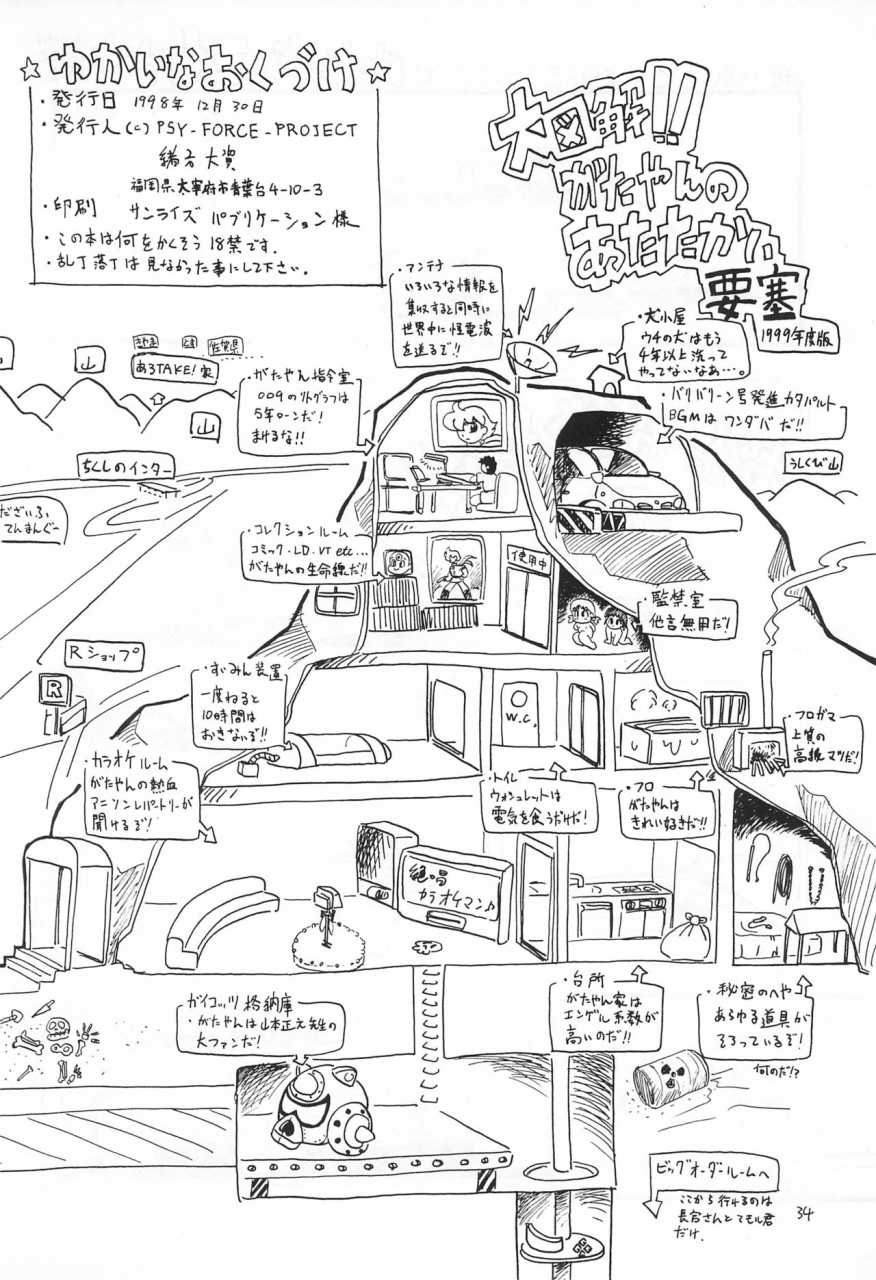 ☆ゆかいなおくづけ☆
・発行日 1998年12月30日
・発行人(c)PSY-FORCE-PROJECT
緒方大賀
福岡県太宰府市青葉台4-10-3
・印刷 サンライズパブリケーション様
・この本は何をかくそう18禁です.
・乱丁落丁は見なかった事にして下さい.
大図解!!
がたやんの
あたたかい
要塞
1999年度版
・アンテナ
いろいろな情報を
集収すると同時に
世界中に怪電波
を送るぞ!!
・犬小屋
ウチの犬はもう
4年以上洗って
やってないなあ…。
佐賀県
あろTAKE!家
山
山
・がたやん指令室
009のリトグラフは
5年ローンだ!
まけるな!!
・バリバリーン号発進カタパルト
BGMはワンダバだ!!
うしくび山
ちくしのインター
だざいふ
てんまんぐー
・コレクションルーム
コミック・LD.VT etc…
がたやんの生命線だ!!
使用中
・監禁室
他言無用だ!
Rショップ
R
・すいみん装置
一度ねると
10時間は
おきないぞ!!
W.C.
・フロガマ
上質の
高級マツだ!
・カラオケルーム
がたやんの熱血
アニソンレパートリーが
聞けるぞ!
・トイレ
ウォシュレットは
電気を食うだけだ!
・フロ
がたやんは
きれい好きだ!!
絶唱
カラオケマン♪
ガイコッツ格納庫
・がたやんは山本正之先生の
大ファンだ!
・台所
がたやん家は
エンゲル系数が
高いのだ!!
・秘密のへや
あらゆる道具が
そろっているぞ!
何のだ!?
ビッグオーダールームへ
ここから行けるのは
長官さんとてモル君
だけ.
34